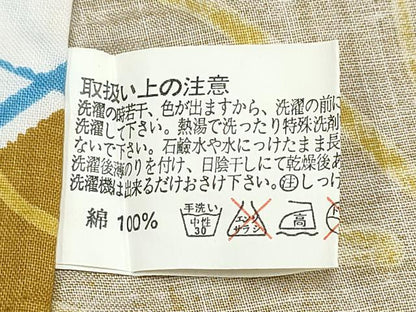 取扱い上の注意
洗濯の時若干、色が出ますから、洗濯の前に
洗濯して下さい。熱湯で洗ったり特殊洗剤
ないで下さい。石鹸水や水につけたまま長
洗濯後薄のりを付け、日陰干しにて乾燥後あ
洗濯機は出来るだけおさけ下さい。注しっけ
綿 100%
手洗い
中性
30
エンソ
サラシ
高
ド